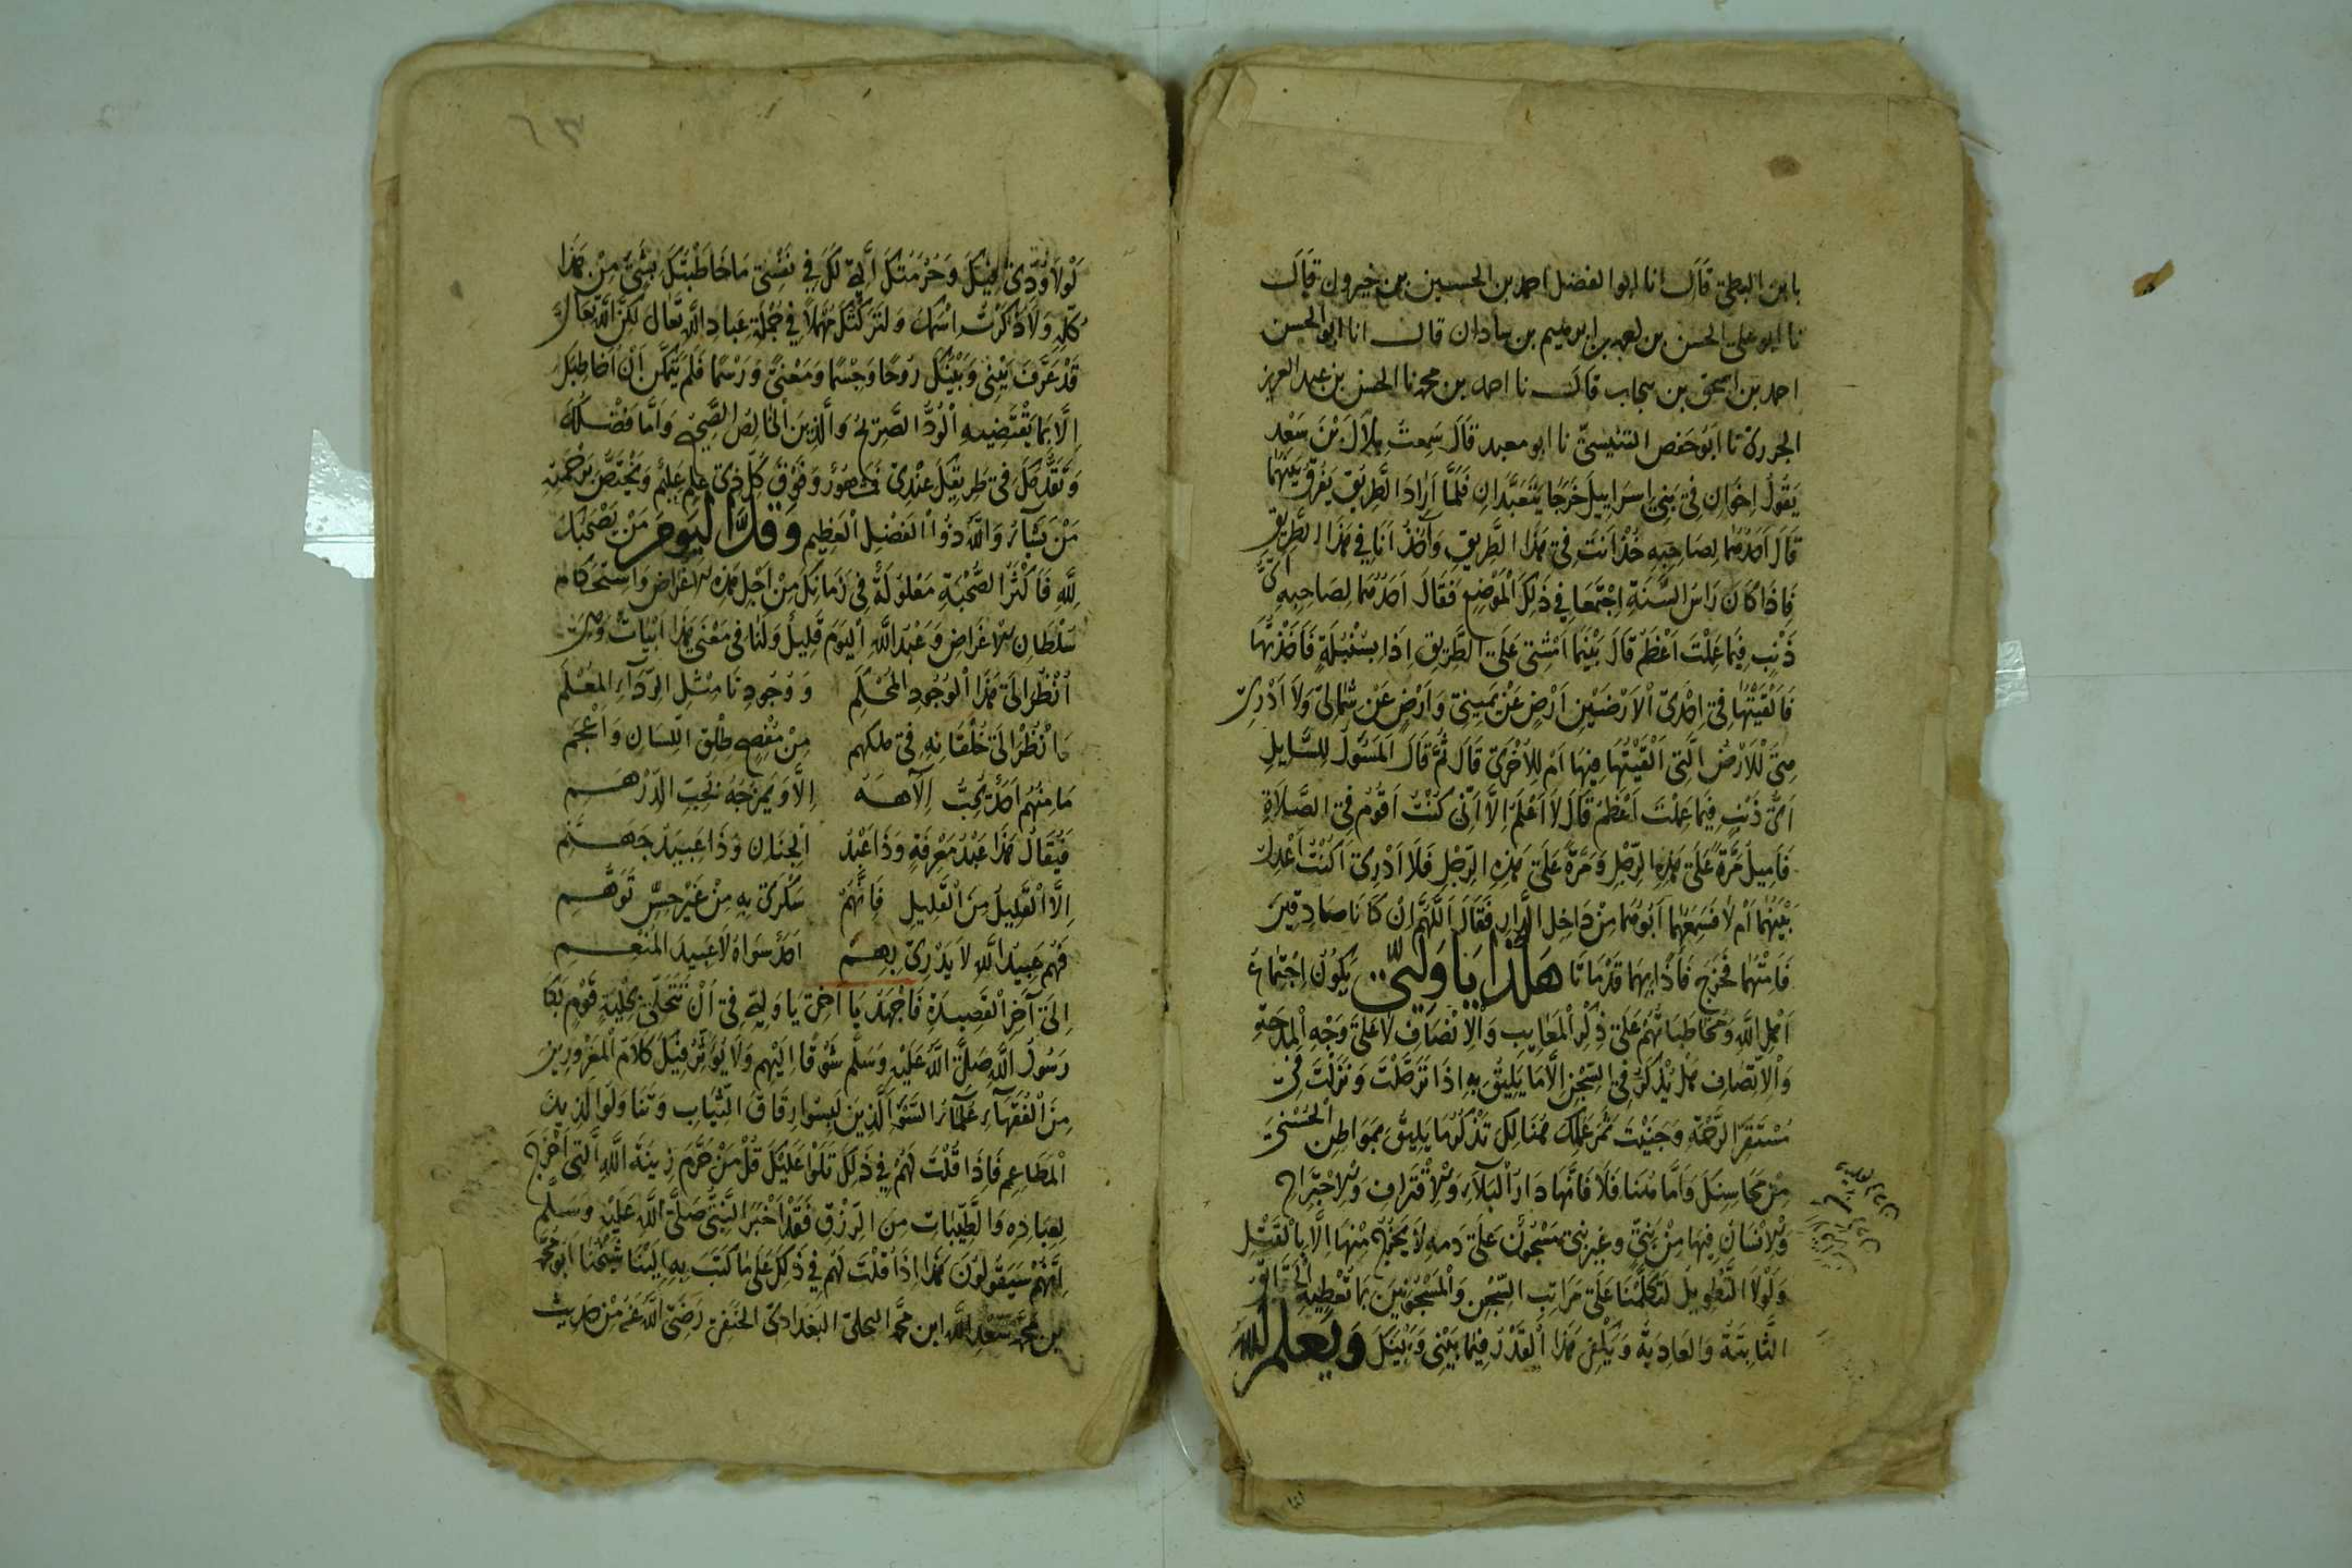 بابن البطى قال انا ابو الفضل احمد بن الحسين بن خيرون قال
نا ابو على الحسن بن ابرهيم بن سادان قال انا ابو الحسن
احمد بن اسحق بن سحاب قال نا احمد بن محمد نا الحسن بن عبد العزيز
الجروى نا ابو حفص التنيسى نا ابو معبد قال سمعت بلال بن سعد
يقول اخوان فى بنى اسراييل خرجا يتعبدان فلما ارادا الطريق يفرق بينهما
قال احدهما لصاحبه خذ انت فى هذا الطريق وآخذ انا فى هذا الطريق
فاذا كان راس السنة اجتمعا فى ذلك الموضع فقال احدهما لصاحبه اى
ذنب فيما عملت اعظم قال بينما امشى على الطريق اذا بسنبلة فاخذتها
فالقيتها فى احدى الارضين ارض عن يمينى وارض عن شمالى ولا ادرى
هى للارض التى القيتها فيها ام للاخرى قال ثم قال المسول للسايل
اى ذنب فيما عملت اعظم قال لا اعلم الا انى كنت اقوم فى الصلاة
فاميل مرة على هذه الرجل ومرة على هذه الرجل فلا ادرى اكنت اعدل
بينهما ام لا فسمعهما ابوهما من داخل الدار فقال اللهم ان كانا صادقين
فامتهما فخرج فاذا بهما قد ماتا هكذا يا ولى يكون اجتماع
اهل الله ومخاطباتهم على ذكر المعايب والانصاف لا على وجه المدحة
والاتصاف هل يذكر فى السجن الا ما يليق به اذا ترحلت ونزلت فى
مستقر الرحمة وجنيت ثمر عملك هنالك تذكر ما يليق بمواطن الحسنى
من محاسنك واما هنا فلا فانها دار البلاء والاقتراف والاجتراح
والانسان فيها من بنى وغير بنى مسجون على دمه لا يخرج منها الا بالقتل
ولولا التطويل لتكلمنا على مراتب السجن والمسجونين بما تعطيه الحقايق
الثابتة والعادية ويكفى هذا القدر فيما بينى وبينك ويعلم الله
لولا ودى فيك وحرمتك التى لك فى نفسى ما خاطبتك بشى من هذا
كله ولا ذكرت اسمك ولتركتك مهملا فى جملة عباد الله تعال لكن الله تعال
قد عرف بينى وبينك روحا وجسما ومعنى ورسما فلم يتمكن ان اخاطبك
الا بما يقتضيه الود الصريح والدين الخالص الصحيح واما فضلك
وتقدمك فى طريقك عندى فمتصور وفوق كل ذى علم عليم ويختص برحمته
من يشآء والله ذو الفضل العظيم وقل اليوم من يصحبك
لله فاكثر الصحبة معلولة فى زمانك من اجل هذه الاغراض واستحكام
سلطان الاغراض وعبد الله اليوم قليل ولنا فى معنى هذا ابيات وهى
انظر الى هذا الوجود المحكم ووجودنا مثل الردآء المعلم
وانظر الى خلفانه فى ملكهم من مفصح طلق اللسان واعجم
ما منهم احد يحب الآهه الا ويمزجه بحب الدرهم
فيقال هذا عبد معرفة وذا عبد الجنان وذا عبيد جهنم
الا القليل من القليل فانهم سكرى به من غير حس توهم
فهم عبيد الله لا يدرى بهم احد سواه لا عبيد المنعم
الى آخر القصيدة فاجهد يا اخى يا ولى فى ان تتحلى بحلية قوم بكا
رسول الله صلى الله عليه وسلم شوقا اليهم ولا يوثر فيك كلام المغرورين
من الفقهآء علمآء السوء الذين لبسوا رقاق الثياب وتناولوا لذيذ
المطاعم فاذا قلت لهم فى ذلك تلوا عليك قل من حرم زينة الله التى اخرج
لعباده والطيبات من الرزق فقد اخبر النبى صلى الله عليه وسلم
انهم سيقولون هذا اذا قلت لهم فى ذلك على ما كتب به الينا شيخنا ابو محمد
بن محمد سعد الله ابن محمد البجلى البغدادى الحنفى رضى الله عنه من حديث